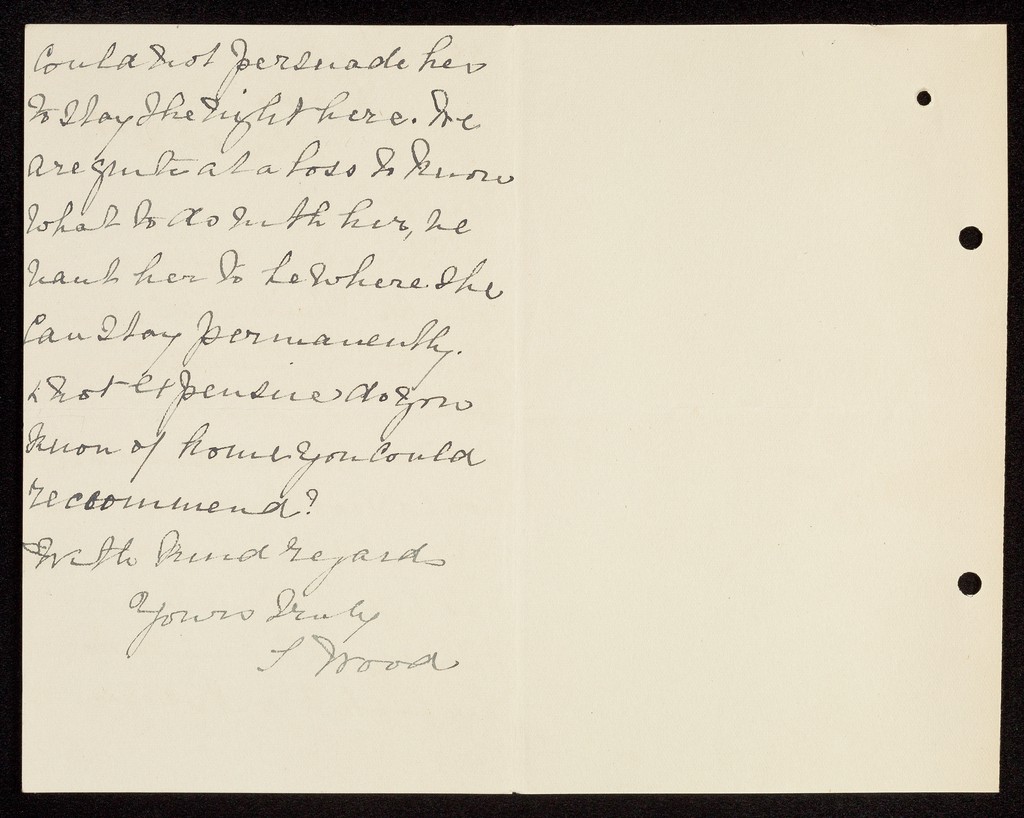 Could not persuade her
to stay the night here. We
are quite at a loss to know
what to do with her, we
want her to be where she
can stay permanently.
& not expensive do you
know of home you could
reccommend?
With kind regards
Yours truly
S Wood